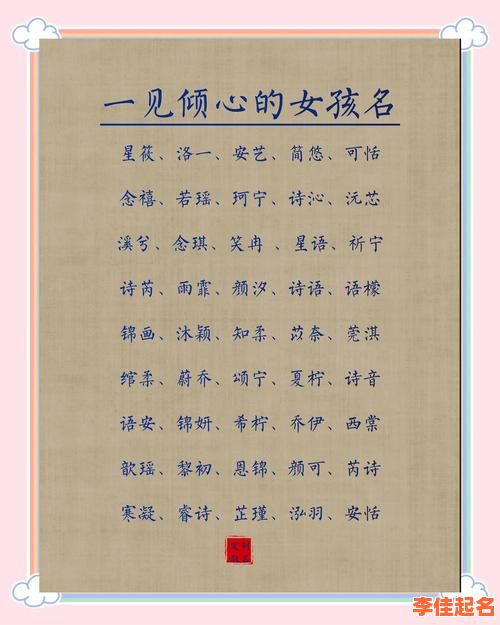 一见倾心的女孩名
星筱、洛一、安艺、简悠、可恬
念禧、若瑶、珂宁、诗沁、沅芯
溪兮、念琪、笑冉、星语、祈宁
诗芮、雨霏、颜汐、诗语、语檬
锦画、沐颖、知柔、苡奈、莞淇
绾柔、蔚乔、颂宁、夏柠、诗音
语安、锦妍、希柠、乔伊、西棠
歆瑶、黎初、恩锦、颜可、芮诗
寒凝、睿诗、芷瑾、泓羽、安恬
李佳起名